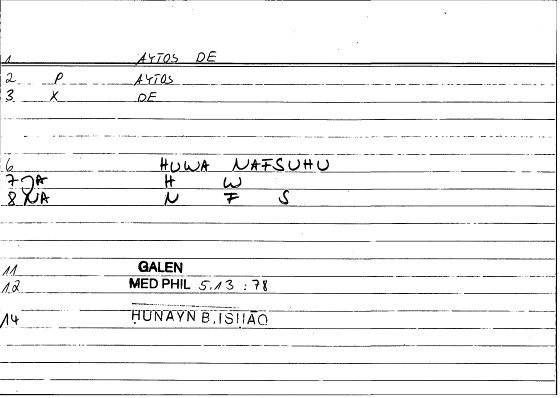 1 AYTOS DE
2 P AYTOS
3 X DE
6 HUWA NAFSUHU
7 JA H W
8 NA N F S
11 GALEN
12 MED PHIL 5.13 : 78
14 ḤUNAYN B. ISḤĀQ